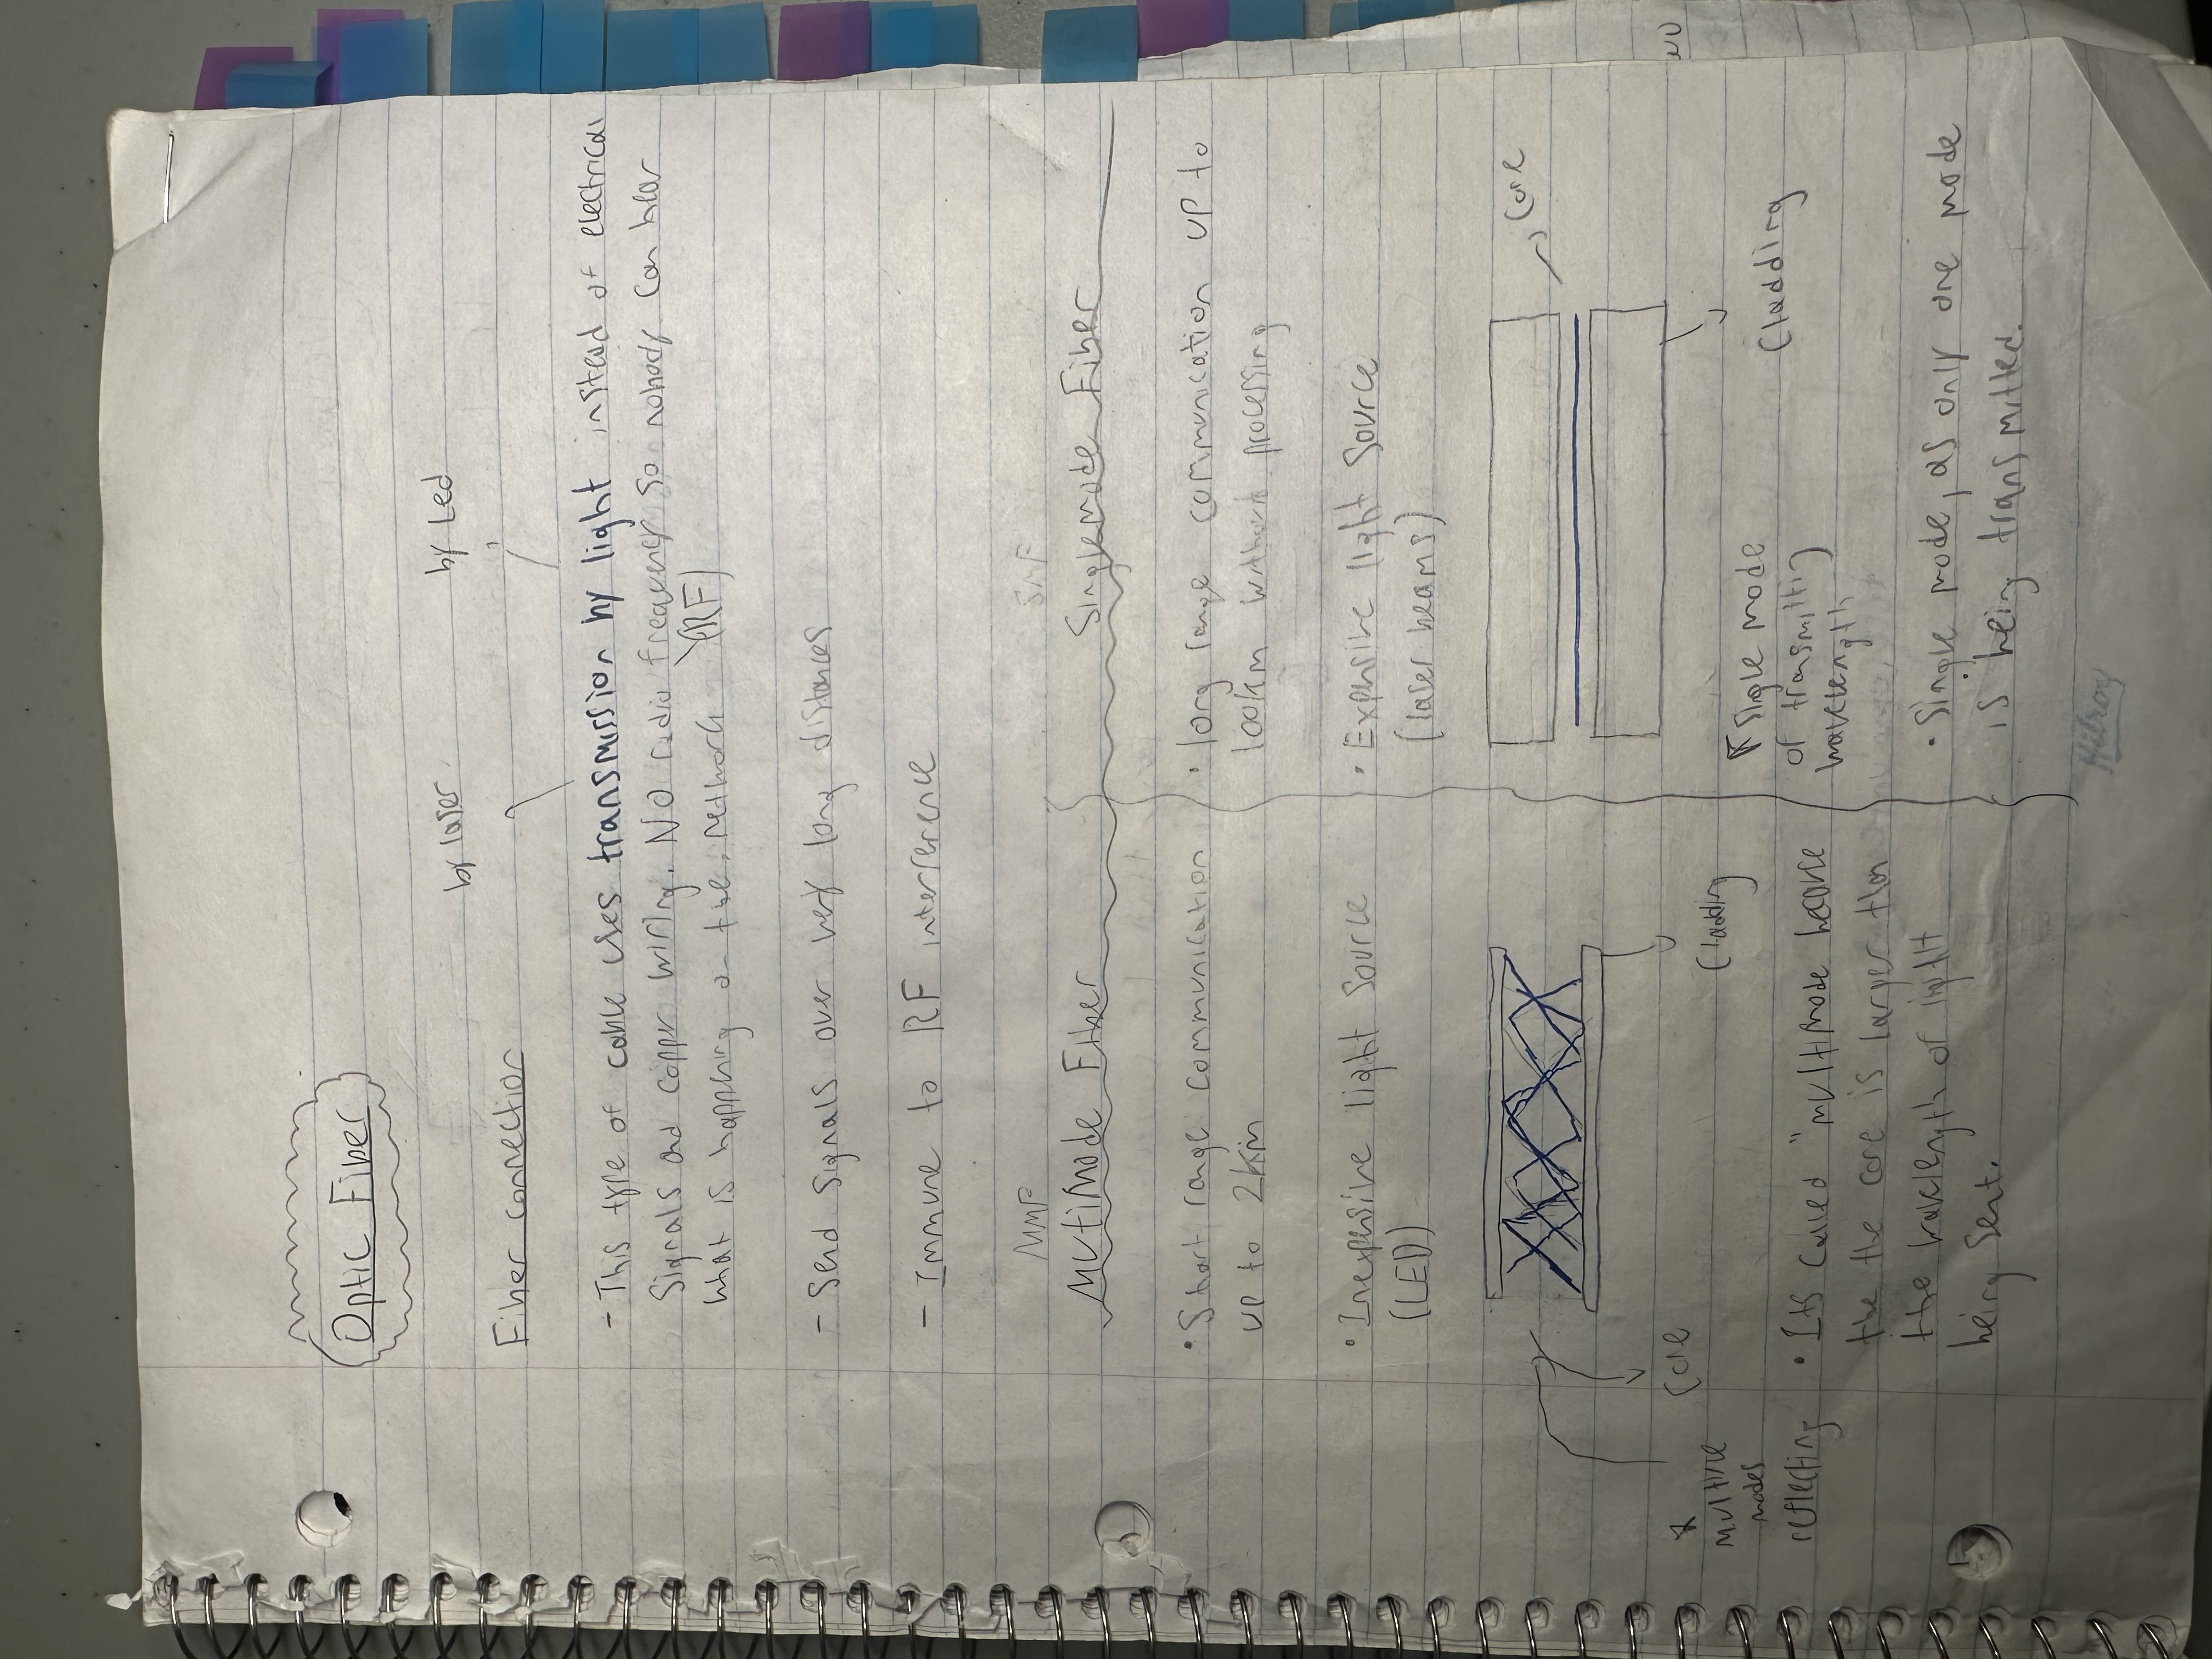 Optic Fiber
by laser
by Led
Fiber connection
- This type of cable uses transmission by light instead of electrical
signals and copper wiring. NO radio frequency so nobody can hear
what is happening on the network (RF)
- Send signals over very long distances
- Immune to RF interference
MMF
MutiMode Fiber
• Short range communication
up to 2km
• Inexpensive light source
(LED)
Core
Cladding
* multiple
modes
reflecting
• Its called "multimode because
the the core is larger than
the wavelength of light
being sent.
SMF
Singlemode Fiber
• long range communication up to
100km without processing
• Expensive light source
(laser beams)
Core
Cladding
* Single mode
of transmitting
wavelength
• Single mode, as only one mode
is being transmitted.
Hilroy